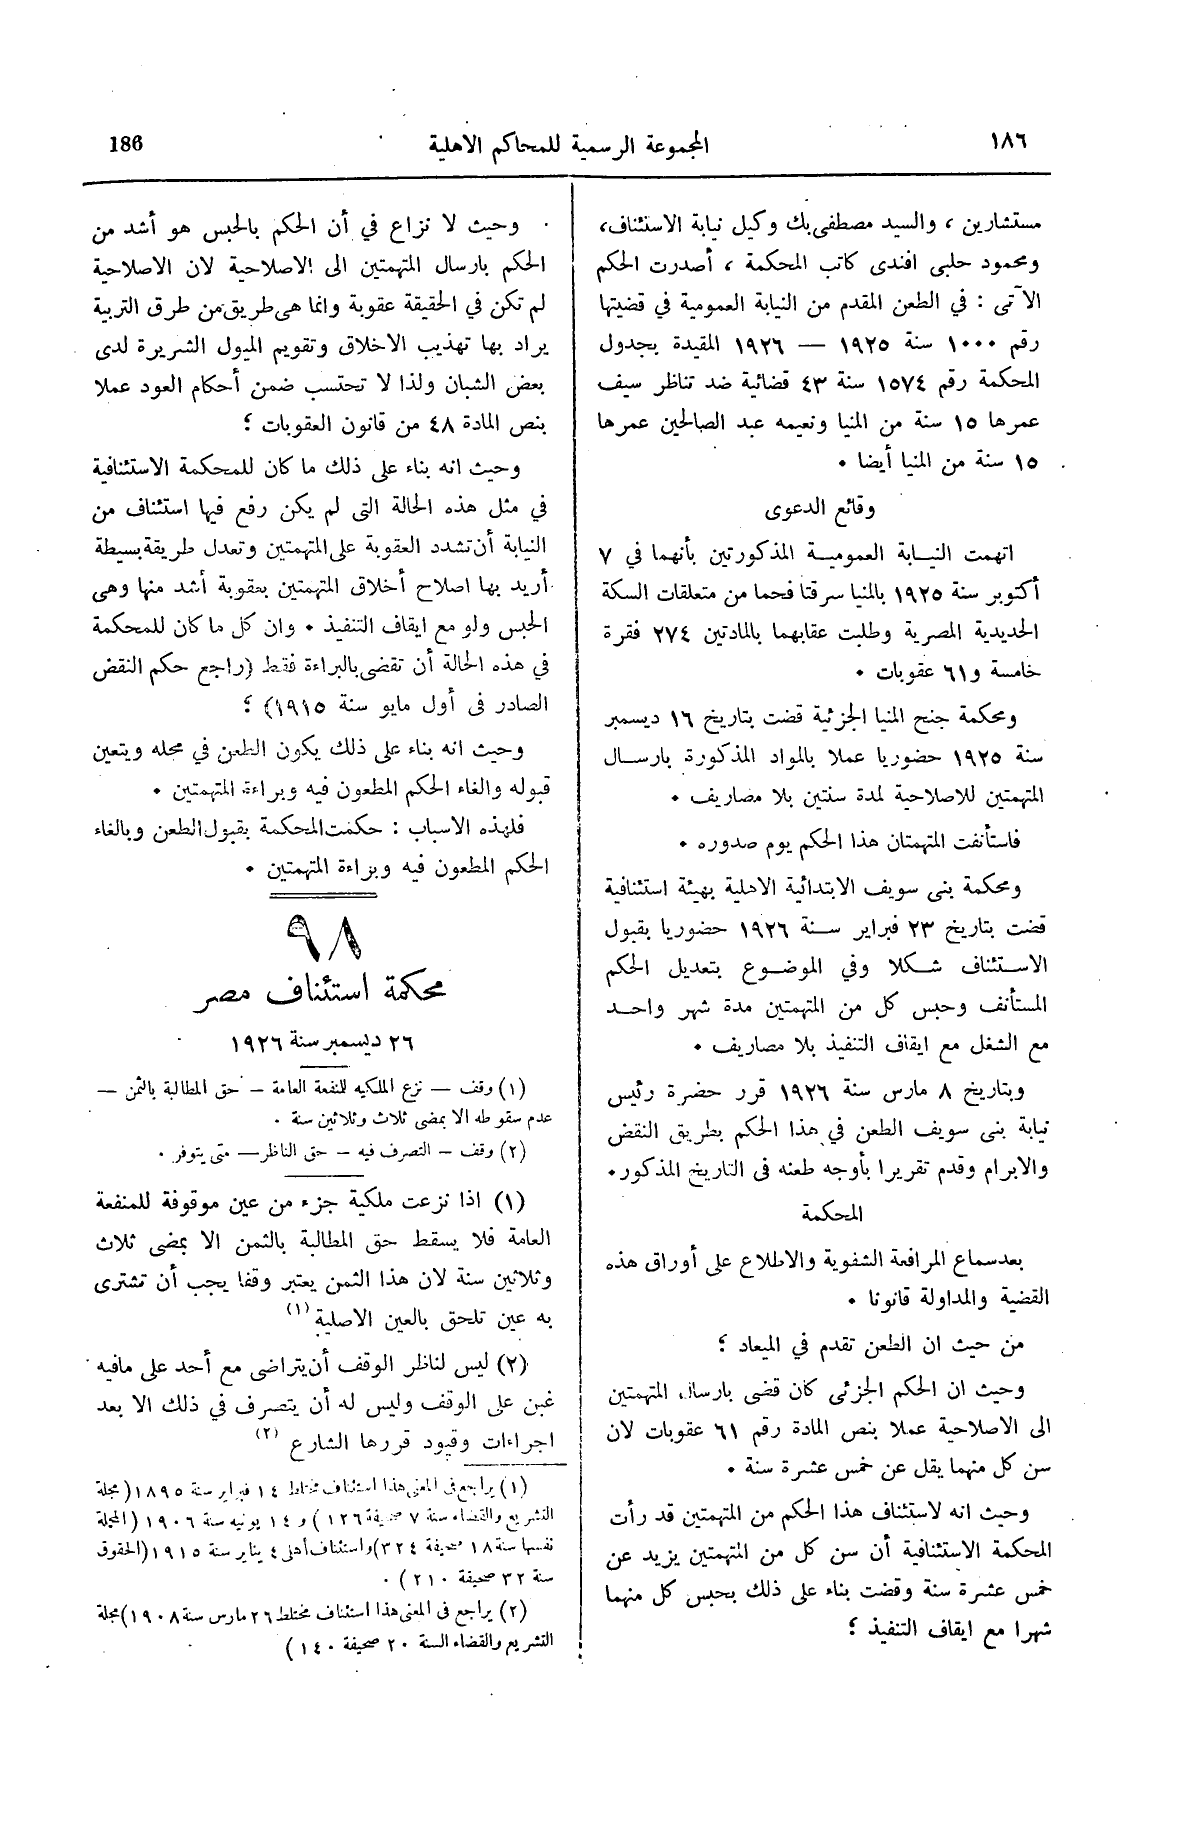 ١٨٦ المجموعة الرسمية للمحاكم الاهلية 186
مستشارين ، والسيد مصطفى بك وكيل نيابة الاستئناف،
ومحمود حلمي افندى كاتب المحكمة ، أصدرت الحكم
الآتى : في الطعن المقدم من النيابة العمومية في قضيتها
رقم ١٠٠٠ سنة ١٩٢٥ — ١٩٢٦ المقيدة بجدول
المحكمة رقم ١٥٧٤ سنة ٤٣ قضائية ضد تناظر سيف
عمرها ١٥ سنة من المنيا ونعيمه عبد الصالحين عمرها
١٥ سنة من المنيا أيضا .
وقائع الدعوى
اتهمت النيابة العمومية المذكورتين بأنهما في ٧
أكتوبر سنة ١٩٢٥ بالمنيا سرقتا فحما من متعلقات السكة
الحديدية المصرية وطلبت عقابهما بالمادتين ٢٧٤ فقرة
خامسة و٦١ عقوبات .
ومحكمة جنح المنيا الجزئية قضت بتاريخ ١٦ ديسمبر
سنة ١٩٢٥ حضوريا عملا بالمواد المذكورة بارسال
المتهمتين للاصلاحية لمدة سنتين بلا مصاريف .
فاستأنفت المتهمتان هذا الحكم يوم صدوره .
ومحكمة بنى سويف الابتدائية الاهلية بهيئة استئنافية
قضت بتاريخ ٢٣ فبراير سنة ١٩٢٦ حضوريا بقبول
الاستئناف شكلا وفي الموضوع بتعديل الحكم
المستأنف وحبس كل من المتهمتين مدة شهر واحد
مع الشغل مع ايقاف التنفيذ بلا مصاريف .
وبتاريخ ٨ مارس سنة ١٩٢٦ قرر حضرة رئيس
نيابة بنى سويف الطعن في هذا الحكم بطريق النقض
والابرام وقدم تقريرا بأوجه طعنه فى التاريخ المذكور.
المحكمة
بعد سماع المرافعة الشفوية والاطلاع على أوراق هذه
القضية والمداولة قانونا .
من حيث ان الطعن تقدم في الميعاد ؛
وحيث ان الحكم الجزئى كان قضى بارسال المتهمتين
الى الاصلاحية عملا بنص المادة رقم ٦١ عقوبات لان
سن كل منهما يقل عن خمس عشرة سنة .
وحيث انه لاستئناف هذا الحكم من المتهمتين قد رأت
المحكمة الاستئنافية أن سن كل من المتهمتين يزيد عن
خمس عشرة سنة وقضت بناء على ذلك بحبس كل منهما
شهرا مع ايقاف التنفيذ ؛
وحيث لا نزاع في أن الحكم بالحبس هو أشد من
الحكم بارسال المتهمتين الى الاصلاحية لان الاصلاحية
لم تكن في الحقيقة عقوبة وانما هى طريق من طرق التربية
يراد بها تهذيب الاخلاق وتقويم الميول الشريرة لدى
بعض الشبان ولذا لا تحتسب ضمن أحكام العود عملا
بنص المادة ٤٨ من قانون العقوبات ؛
وحيث انه بناء على ذلك ما كان للمحكمة الاستئنافية
في مثل هذه الحالة التى لم يكن رفع فيها استئناف من
النيابة أن تشدد العقوبة على المتهمتين وتعدل طريقة بسيطة
أريد بها اصلاح أخلاق المتهمتين بعقوبة أشد منها وهى
الحبس ولو مع ايقاف التنفيذ . وان كل ما كان للمحكمة
في هذه الحالة أن تقضى بالبراءة فقط (راجع حكم النقض
الصادر فى أول مايو سنة ١٩١٥) ؛
وحيث انه بناء على ذلك يكون الطعن في محله ويتعين
قبوله والغاء الحكم المطعون فيه وبراءة المتهمتين .
فلهذه الاسباب : حكمت المحكمة بقبول الطعن وبالغاء
الحكم المطعون فيه وبراءة المتهمتين .
٩٨
محكمة استئناف مصر
٢٦ ديسمبر سنة ١٩٢٦
(١) وقف — نزع الملكيه للنفعة العامة — حق المطالبة بالثمن —
عدم سقوطه الا بمضى ثلاث وثلاثين سنة .
(٢) وقف — التصرف فيه — حق الناظر — متى يتوفر .
(١) اذا نزعت ملكية جزء من عين موقوفة للمنفعة
العامة فلا يسقط حق المطالبة بالثمن الا بمضى ثلاث
وثلاثين سنة لان هذا الثمن يعتبر وقفا يجب أن تشترى
به عين تلحق بالعين الاصلية (١)
(٢) ليس لناظر الوقف أن يتراضى مع أحد على مافيه
غبن على الوقف وليس له أن يتصرف في ذلك الا بعد
اجراءات وقيود قررها الشارع (٢)
(١) يراجع فى المعنى هذا استئناف مختلط ١٤ فبراير سنة ١٨٩٥ (مجلة
التشريع والقضاء سنة ٧ صحيفة ١٢٦) و ١٤ يونيه سنة ١٩٠٦ (المجلة
نفسها سنة ١٨ صحيفة ٣٢٤) واستئناف أهلى ٤ يناير سنة ١٩١٥ (الحقوق
سنة ٣٢ صحيفة ٢١٠) .
(٢) يراجع فى المعنى هذا استئناف مختلط ٢٦ مارس سنة ١٩٠٨ (مجلة
التشريع والقضاء السنة ٢٠ صحيفة ١٤٠)